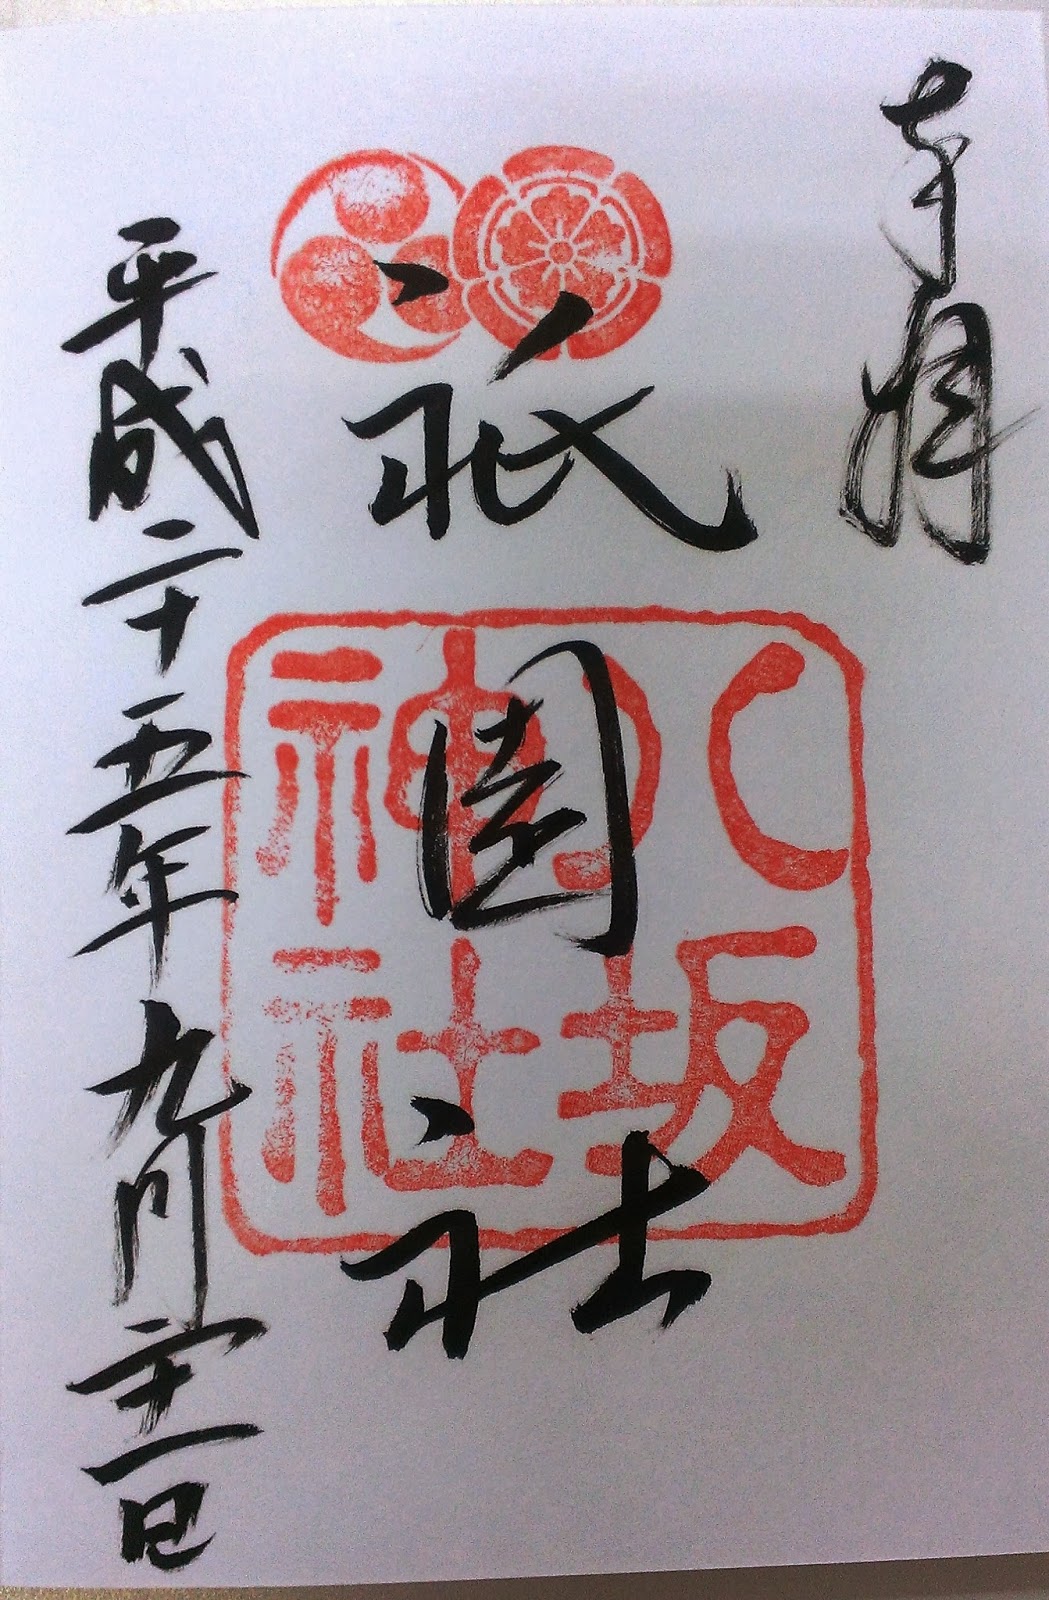 奉拝
祇園社
八坂
神社
平成二十五年九月二十二日